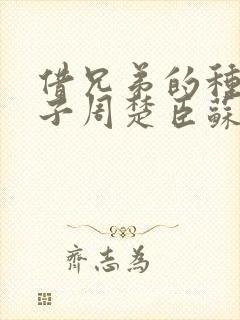 借兄弟的種
子周楚臣蘇
齊志為